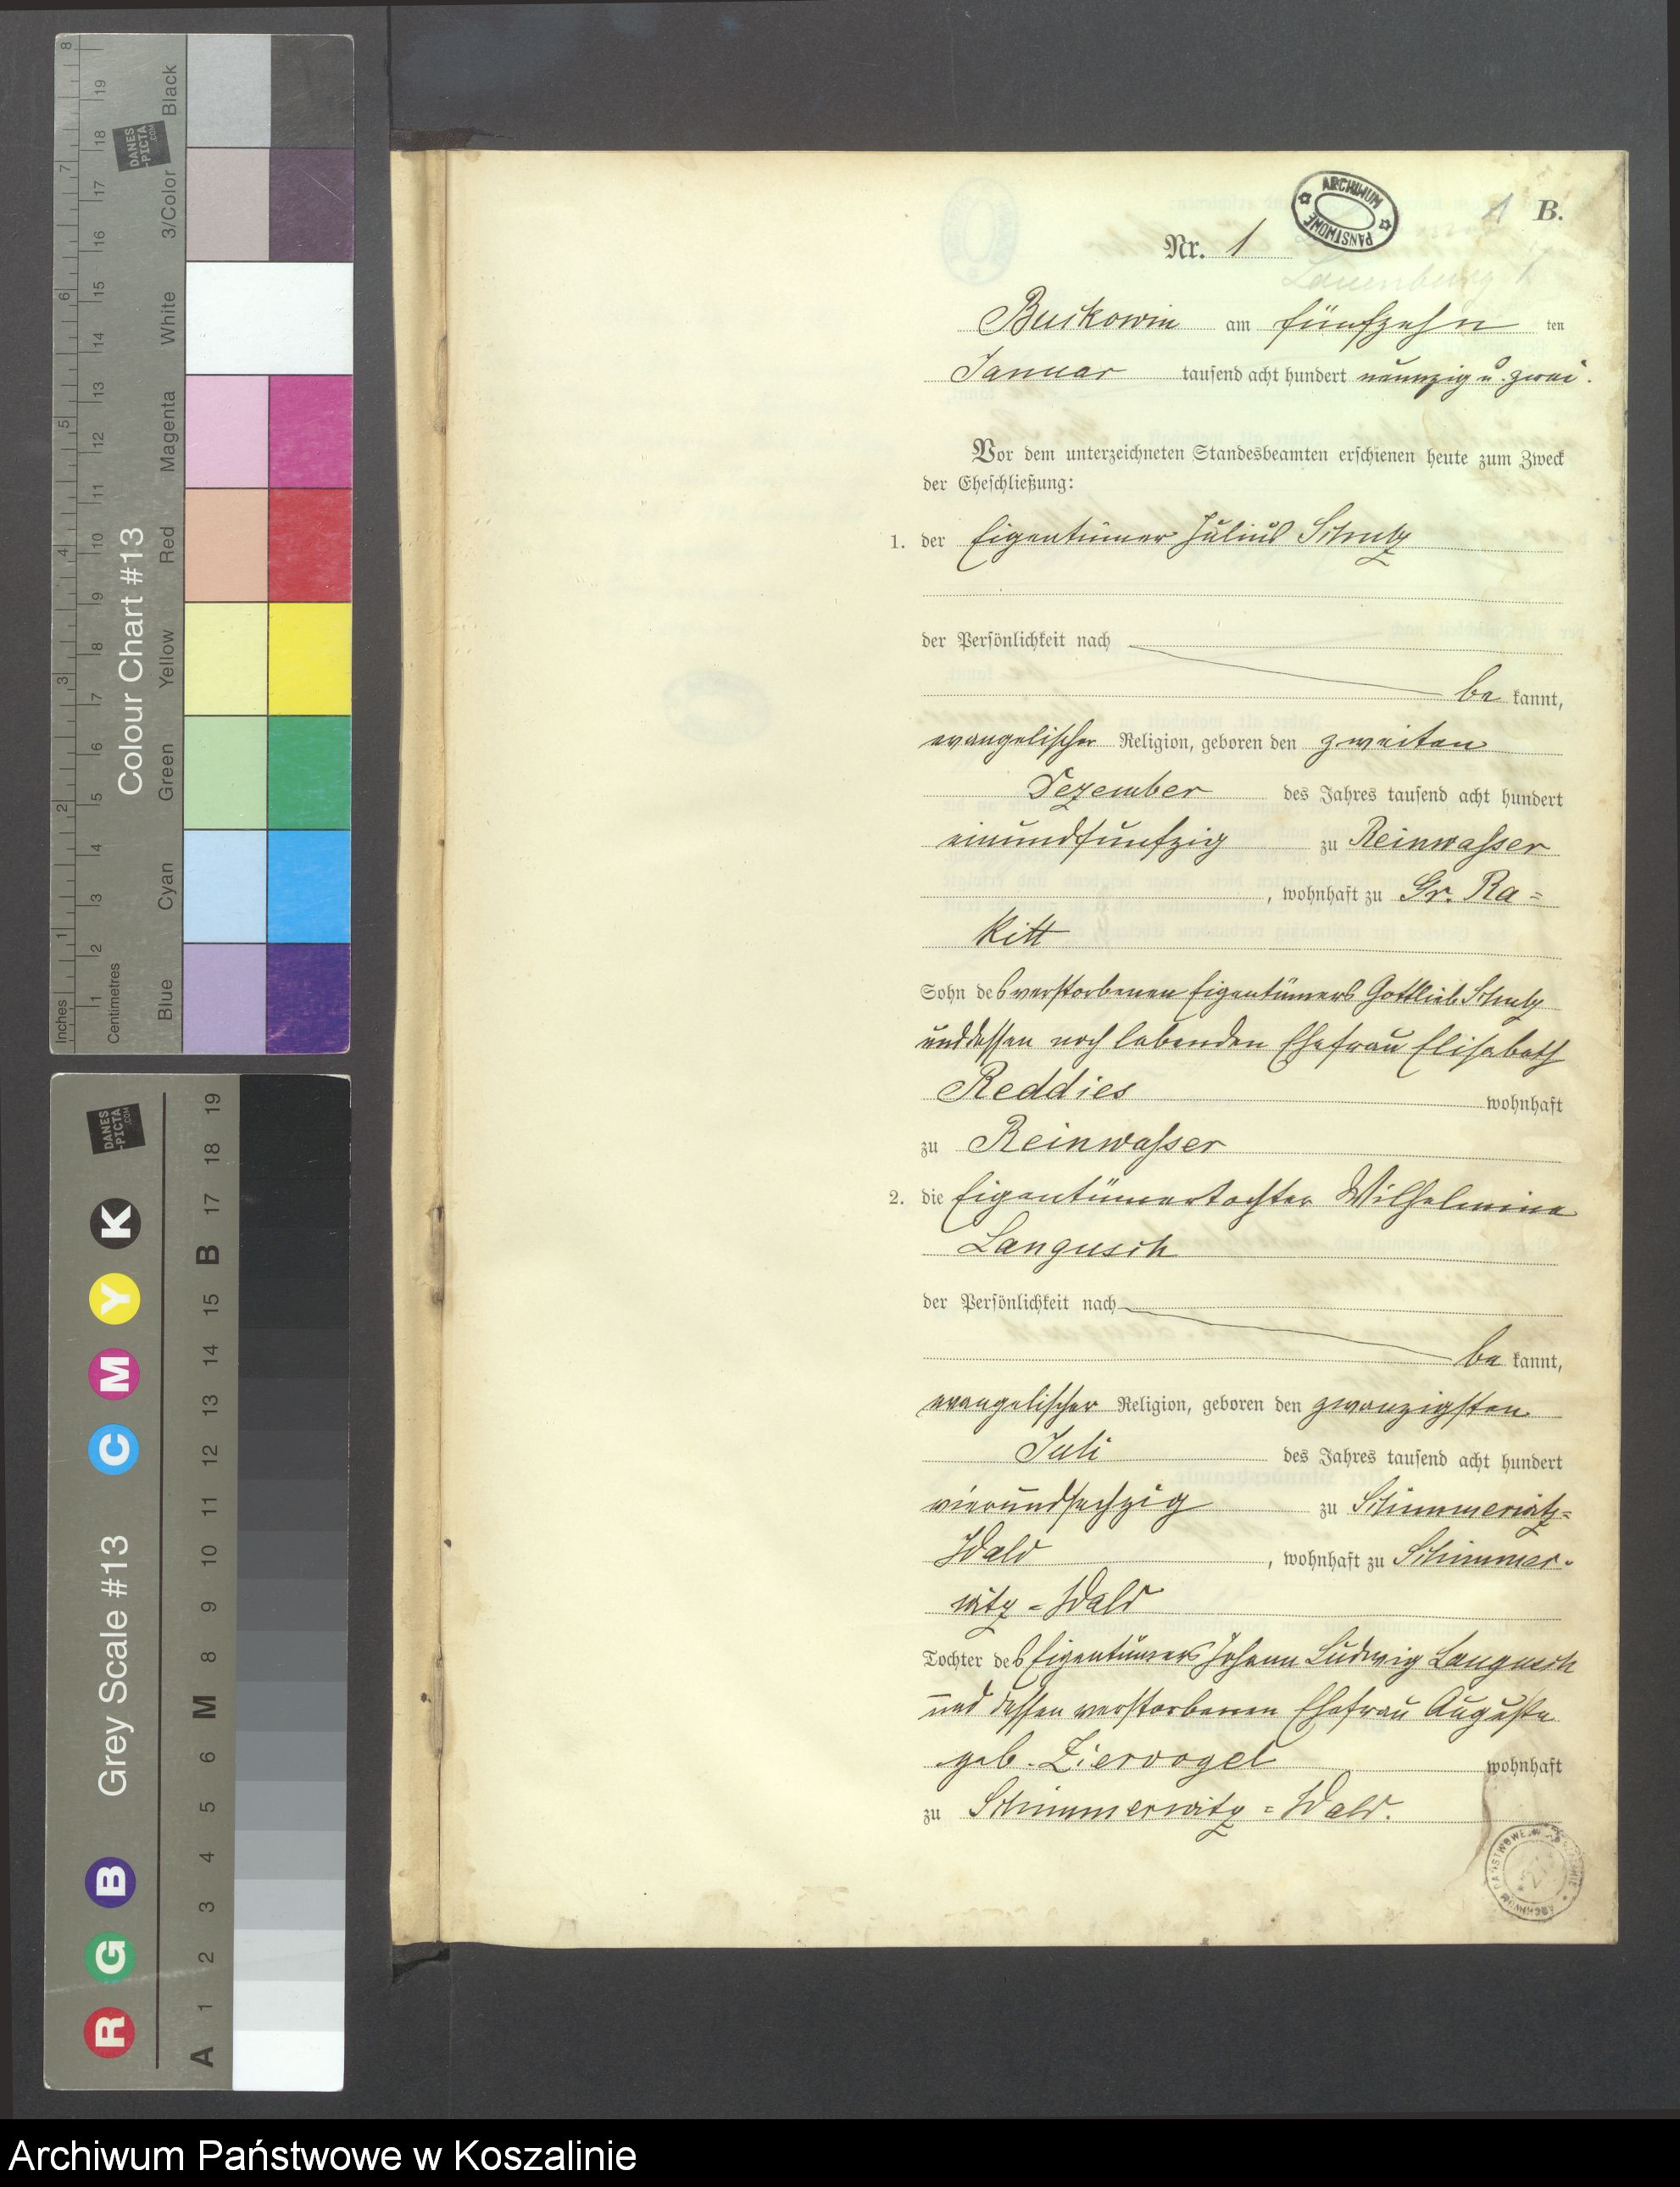 8
7
6
5
4
3
2
1
Inches
19
18
17
16
15
14
13
12
11
10
9
8
7
6
5
4
3
2
1
Centimetres
Colour Chart #13
DANES
-PICTA
.COM
Black
3/Color
White
Magenta
Red
Yellow
Green
Cyan
Blue
DANES
-PICTA
.COM
Grey Scale #13
R G B C M Y K
19
18
17
B
15
14
13
12
11
10
9
8
M
6
5
4
3
2
1
A
ARCHIWUM
PAŃSTWOWE
1 B.
Nr. 1
Lauenburg
Buckowin am fünfzehn ten
Januar tausend acht hundert neunzig u. zwei.
Vor dem unterzeichneten Standesbeamten erschienen heute zum Zweck
der Eheschließung:
1. der Eigentümer Julius Schulz
der Persönlichkeit nach
be kannt,
evangelischer Religion, geboren den zweiten
Dezember des Jahres tausend acht hundert
einundfünfzig zu Reinwasser
, wohnhaft zu Gr. Ra=
kitt
Sohn des verstorbenen Eigentümers Gottlieb Schulz
und dessen noch lebenden Ehefrau Elisabeth
Reddies wohnhaft
zu Reinwasser
2. die Eigentümertochter Wilhelmine
Langusch
der Persönlichkeit nach
be kannt,
evangelischer Religion, geboren den zwanzigsten
Juli des Jahres tausend acht hundert
vierundsechzig zu Schimmerwitz=
Wald , wohnhaft zu Schimmer-
witz = Wald
Tochter des Eigentümers Johann Ludwig Langusch
und dessen verstorbenen Ehefrau Auguste
geb. Ziervogel wohnhaft
zu Schimmerwitz = Wald.
Archiwum Państwowe w Koszalinie